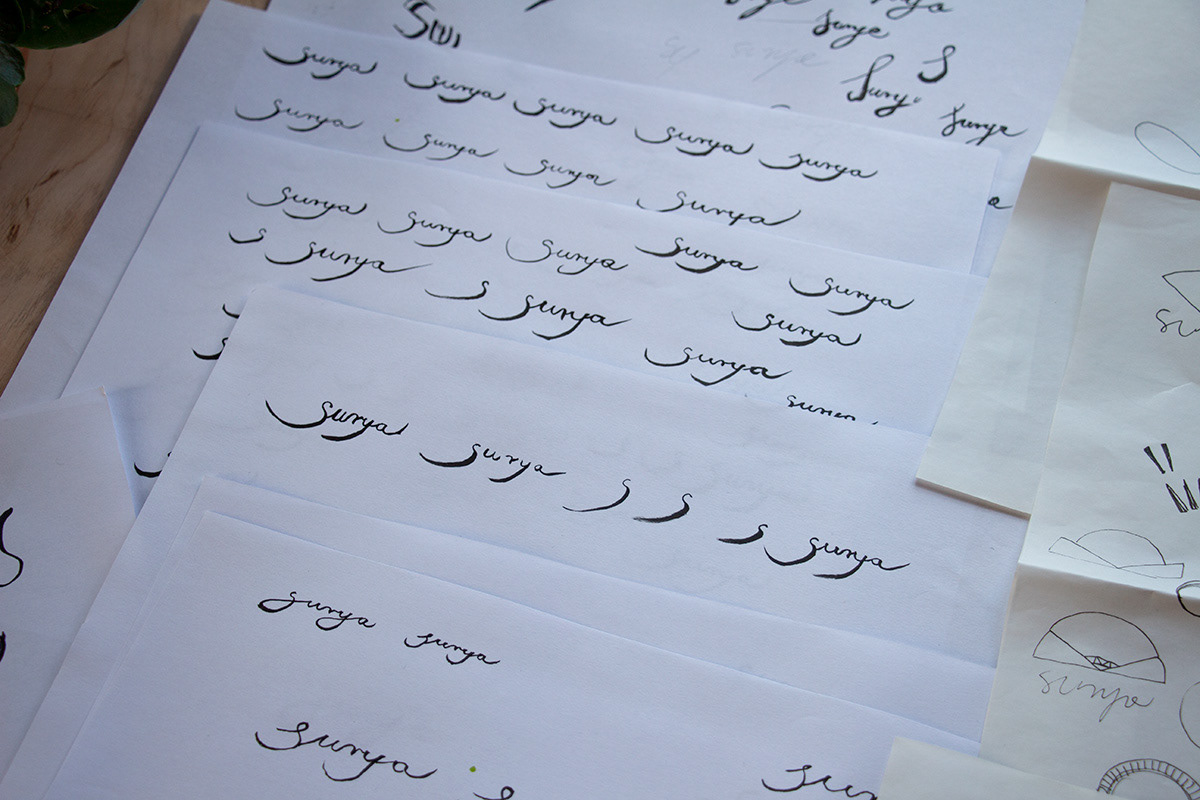 Su
surye
S
Surye surye
surya surya surya surya surya
surya surya surya surya
surya surya surya surya surya
s surya s surya surya
surya
surya surya s s s surya
surya surya
surya
surya